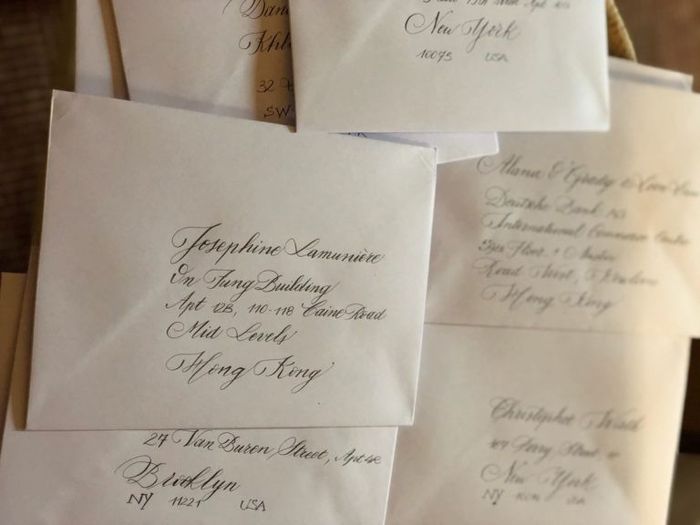 Dani
Khl
32
SW
New York
10075 USA
Josephine Lamunière
On Fung Building
Apt 12B, 110-118 Caine Road
Mid Levels
Hong Kong
Alana & Grady
Deutsche Bank AG
International Commerce Centre
Floor, 1 Austin
Road West, Kowloon
Hong Kong
27 Van Buren Street, Apt 4E
Brooklyn
NY 11221 USA
Christopher
Perry Street
New York
NY